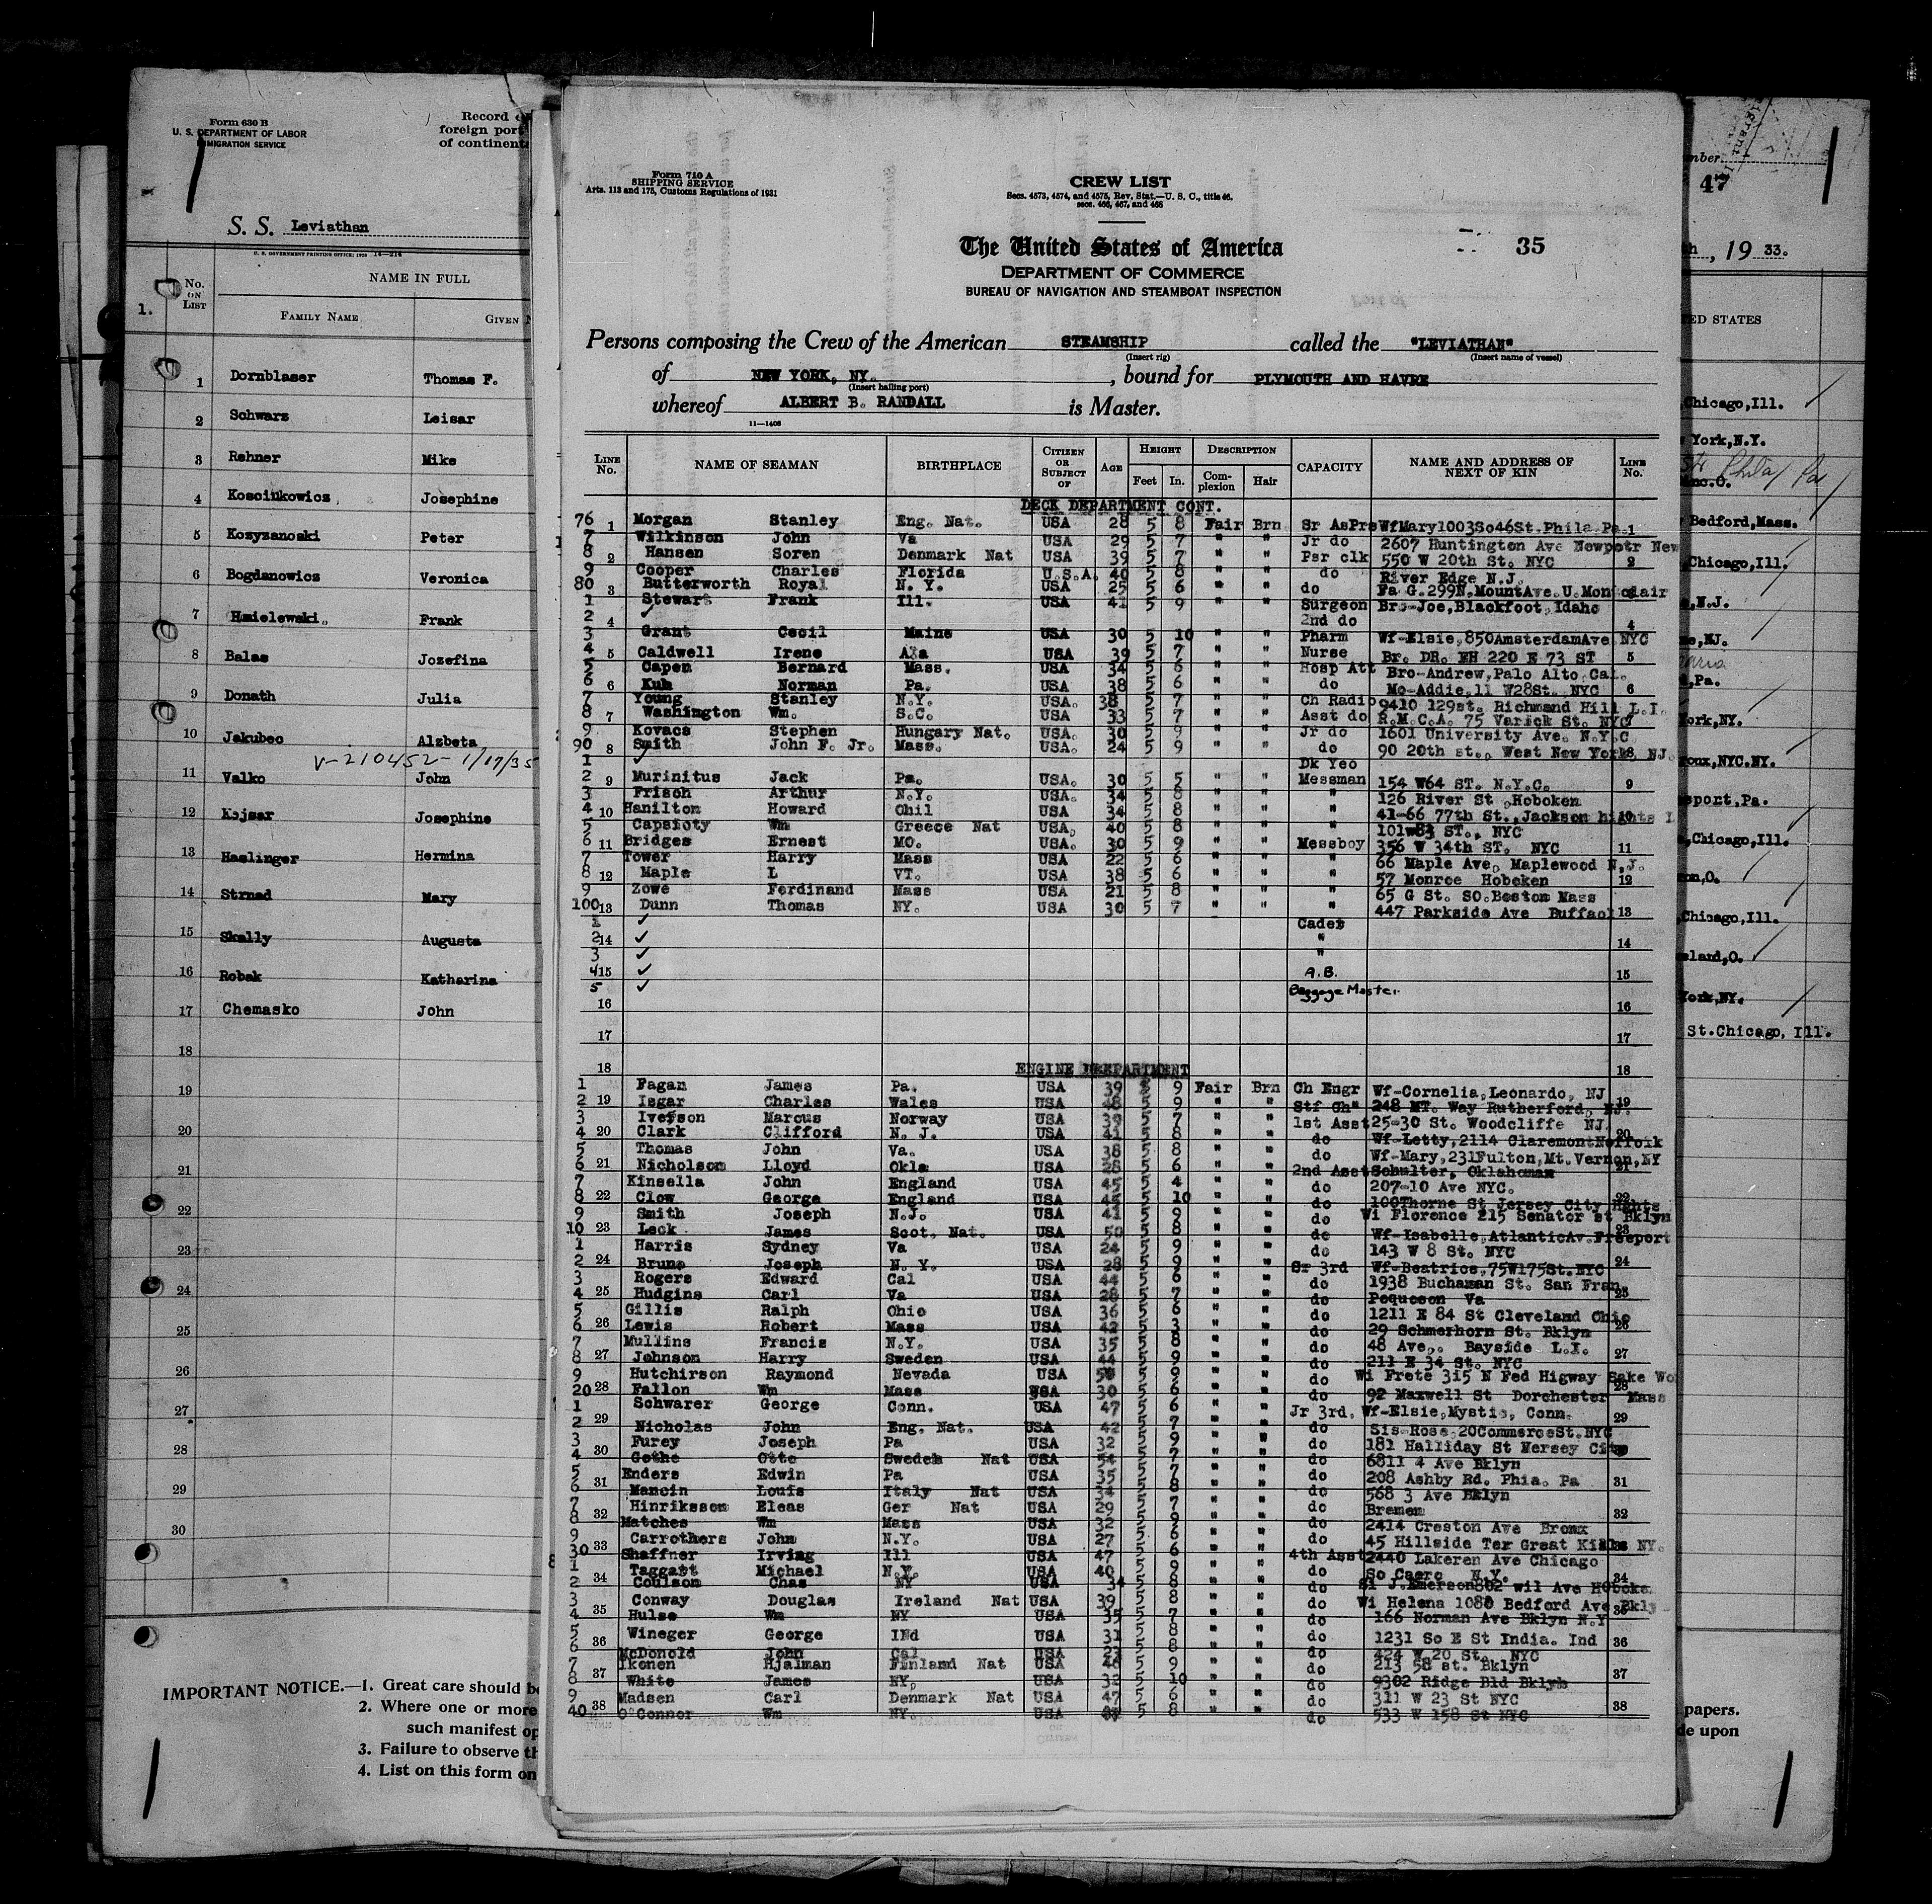 Form 630 B
U. S. DEPARTMENT OF LABOR
IMMIGRATION SERVICE
Record
foreign port
of continent
S. S. Leviathan
U. S. GOVERNMENT PRINTING OFFICE: 1929
No. ON LIST
NAME IN FULL
FAMILY NAME
GIVEN
1.
1 Dornblaser Thomas F.
2 Schwarz Leisar
3 Rehner Mike
4 Kosciukowicz Josephine
5 Kozyzanoski Peter
6 Bogdanowicz Veronica
7 Hmielewski Frank
8 Balas Jozefina
9 Donath Julia
10 Jakubec Alzbeta
V-210452-1/17/35
11 Valko John
12 Kejsar Josephine
13 Haslinger Hermina
14 Strnad Mary
15 Skally Augusta
16 Robak Katharina
17 Chemasko John
18
19
20
21
22
23
24
25
26
27
28
29
30
IMPORTANT NOTICE.—1. Great care should be
2. Where one or more
such manifest op
3. Failure to observe th
4. List on this form on
Form 710 A
SHIPPING SERVICE
Arts. 113 and 175, Customs Regulations of 1931
CREW LIST
Secs. 4573, 4574, and 4575, Rev. Stat.—U. S. C., title 46,
secs. 466, 467, and 468
The United States of America
DEPARTMENT OF COMMERCE
BUREAU OF NAVIGATION AND STEAMBOAT INSPECTION
35
Persons composing the Crew of the American STEAMSHIP called the "LEVIATHAN"
(Insert rig) (Insert name of vessel)
of NEW YORK, NY. , bound for PLYMOUTH AND HAVRE
(Insert hailing port)
whereof ALBERT B. RANDALL is Master.
11—1406
LINE No. NAME OF SEAMAN BIRTHPLACE CITIZEN OR SUBJECT OF AGE HEIGHT Feet In. DESCRIPTION Complexion Hair CAPACITY NAME AND ADDRESS OF NEXT OF KIN LINE No.
DECK DEPARTMENT CONT.
76 1 Morgan Stanley Eng. Nat. USA 28 5 8 Fair Brn Sr AsPrs WfMary1003So46St.Phila Pa 1
7 Wilkinson John Va USA 29 5 7 " " Jr do 2607 Huntington Ave Newpotr New
8 2 Hansen Soren Denmark Nat USA 39 5 7 " " Psr clk 550 W 20th St. NYC 2
9 Cooper Charles Florida U.S.A. 40 5 8 " " do River Edge N.J.
80 3 Butterworth Royal N. Y. USA 25 5 6 " " do Fa G.299N,MountAve.U.Montclair
1 Stewart Frank Ill. USA 41 5 9 " " Surgeon Bro-Joe,Blackfoot, Idaho
2 4 ✓ 2nd do 4
3 Grant Cecil Maine USA 30 5 10 " " Pharm Wf-Elsie,850AmsterdamAve NYC
4 5 Caldwell Irene Ala USA 39 5 7 " " Nurse Br. DR. FH 220 E 73 ST 5
5 Capen Bernard Mass. USA 34 5 6 " " Hosp Att Bro-Andrew,Palo Alto,Cal.
6 6 Kuh Norman Pa. USA 38 5 6 " " do Mo-Addie,11 W28St. NYC 6
7 Young Stanley N.Y. USA. 38 5 7 " " Ch Radio 9410 129st. Richmand Hill L.I.
8 7 Washington Wm. S.C. USA 33 5 7 " " Asst do R.M.C.A. 75 Varick St. NYC
9 Kovacs Stephen Hungary Nat. USA. 30 5 9 " " Jr do 1601 University Ave. N.Y.C
90 8 Smith John F. Jr. Mass. USA. 24 5 9 " " do 90 20th st., West New York, NJ.
1 ✓ Dk Yeo
2 9 Murinitus Jack Pa. USA. 30 5 5 " " Messman 154 W64 ST. N.Y.C. 9
3 Frisch Arthur N.Y. USA. 34 5 8 " " " 126 River St Hoboken
4 10 Hanilton Howard Ohil USA 34 5 8 " " " 41-66 77th St., Jackson hights
5 Capsioty Wm Greece Nat USA. 40 5 8 " " " 101w83 ST., NYC
6 11 Bridges Ernest MO. USA. 30 5 9 " " Messboy 356 W 34th ST. NYC 11
7 Tower Harry Mass USA 22 5 6 " " " 66 Maple Ave, Maplewood N.J.
8 12 Maple L VT. USA 38 5 6 " " " 57 Monroe Hoboken 12
9 Zowe Ferdinand Mass USA 21 5 8 " " " 65 G St. SO.Boston Mass
100 13 Dunn Thomas NY. USA 30 5 7 " " " 447 Parkside Ave Buffaol 13
1 ✓ Cadet
2 14 ✓ " 14
3 ✓ "
4 15 ✓ A.B. 15
5 ✓ Baggage Master.
16 16
17 17
18 ENGINE DEEPARTMENT 18
1 Fagan James Pa. USA 39 5 9 Fair Brn Ch Engr Wf-Cornelia,Leonardo, NJ
2 19 Isgar Charles Wales USA 48 5 9 " " Stf Ch" 248 MT. Way Rutherford, NJ. 19
3 Iverson Marcus Norway USA 39 5 7 " " 1st Asst 25-30 St. Woodcliffe NJ
4 20 Clark Clifford N. J. USA 41 5 8 " " do Wf-Letty,2114 ClaremontNorfolk 20
5 Thomas John Va. USA 38 5 8 " " do Wf-Mary,231Fulton,Mt.Vernon,NY
6 21 Nicholson Lloyd Okla USA 28 5 6 " " 2nd Asst Schulter, Oklahoman 21
7 Kinsella John England USA 45 5 4 " " do 207-10 Ave NYC.
8 22 Clow George England USA 45 5 10 " " do 100Thorne St Jersey City Hghts 22
9 Smith Joseph N.J. USA 41 5 9 " " do Wi Florence 215 Senator st Bklyn
10 23 Leck James Scot. Nat. USA 50 5 8 " " do Wf-Isabelle,AtlanticAv.Freeport 23
1 Harris Sydney Va USA 24 5 9 " " do 143 W 8 St. NYC
2 24 Bruno Joseph N. Y. USA 28 5 9 " " Sr 3rd Wf-Beatrice,75W175St.NYC 24
3 Rogers Edward Cal USA 44 5 6 " " do 1938 Buchaman St. San Fran
4 25 Hudgins Carl Va USA 28 5 7 " " do Poquoson Va 25
5 Gillis Ralph Ohio USA 36 5 6 " " do 1211 E 84 St Cleveland Ohio
6 26 Lewis Robert Mass USA 42 5 3 " " do 29 Schmerhorn St. Bklyn 26
7 Mullins Francis N.Y. USA 35 5 8 " " do 48 Ave,. Bayside L.I.
8 27 Johnson Harry Sweden USA 44 5 9 " " do 211 E 34 St. NYC 27
9 Hutchirson Raymond Nevada USA 5 9 " " do Wi Frete 315 N Fed Higway Lake Wo
20 28 Fallon Wm Mass USA 30 5 6 " " do 92 Maxwell St Dorchester Mass 28
1 Schwarer George Conn. USA 47 5 6 " " Jr 3rd. Wf-Elsie,Mystic, Conn.
2 29 Nicholas John Eng. Nat. USA 42 5 7 " " do Sis-Rose,20CommerceSt.NYC 29
3 Furey Joseph Pa USA 32 5 9 " " do 181 Halliday St Nersey City
4 30 Gothe Otto Sweden Nat USA 54 5 7 " " do 6811 4 Ave Bklyn
5 Enders Edwin Pa USA 35 5 7 " " do 208 Ashby Rd. Phia. Pa
6 31 Mancin Louis Italy Nat USA 34 5 8 " " do 568 3 Ave Bklyn 31
7 Hinriksson Eleas Ger Nat USA 29 5 7 " " do Bremen
8 32 Matches Wm Mass USA 32 5 9 " " do 2414 Creston Ave Bronx 32
9 Carrothers John N.Y. USA 27 5 6 " " do 45 Hillside Ter Great Kills NY.
30 33 Shaffner Irving Ill USA 47 5 6 " " 4th Asst 2440 Lakeren Ave Chicago
1 Taggart Michael N.Y. USA 40 5 9 " " do So Caero N.Y.
2 34 Coulson Chas NY USA 34 5 8 " " do J.Emerson802 wil Ave Hoboke 34
3 Conway Douglas Ireland Nat USA 39 5 8 " " do Wi Helena 1080 Bedford Ave Bkly
4 35 Hulse Wm NY USA 35 5 7 " " do 166 Norman Ave Bklyn N.Y 35
5 Wineger George INd USA 31 5 8 " " do 1231 So E St India. Ind
6 36 McDonold John Cal USA 23 5 8 " " do 424 W 20 St. NYC 36
7 Ikonen Hjalman Finland Nat USA 40 5 9 " " do 213 58 st. Bklyn
8 37 White James NY, USA 32 5 10 " " do 9302 Ridge Bld Bklyn 37
9 Madsen Carl Denmark Nat USA 47 5 6 " " do 311 W 23 St NYC
40 38 O'Connor Wm NY. USA 5 8 " " do 533 W 158 St NYC 38
mber
47
th , 19 33.
ED STATES
Chicago,Ill.
York,N.Y.
Phila Pa
Bedford,Mass.
Chicago,Ill.
,N.J.
,NJ.
,Pa.
ork,NY.
oux,NYC.NY.
sport,Pa.
,Chicago,Ill.
on,O.
Chicago,Ill.
eland,O.
York,NY.
St.Chicago, Ill.
papers.
de upon